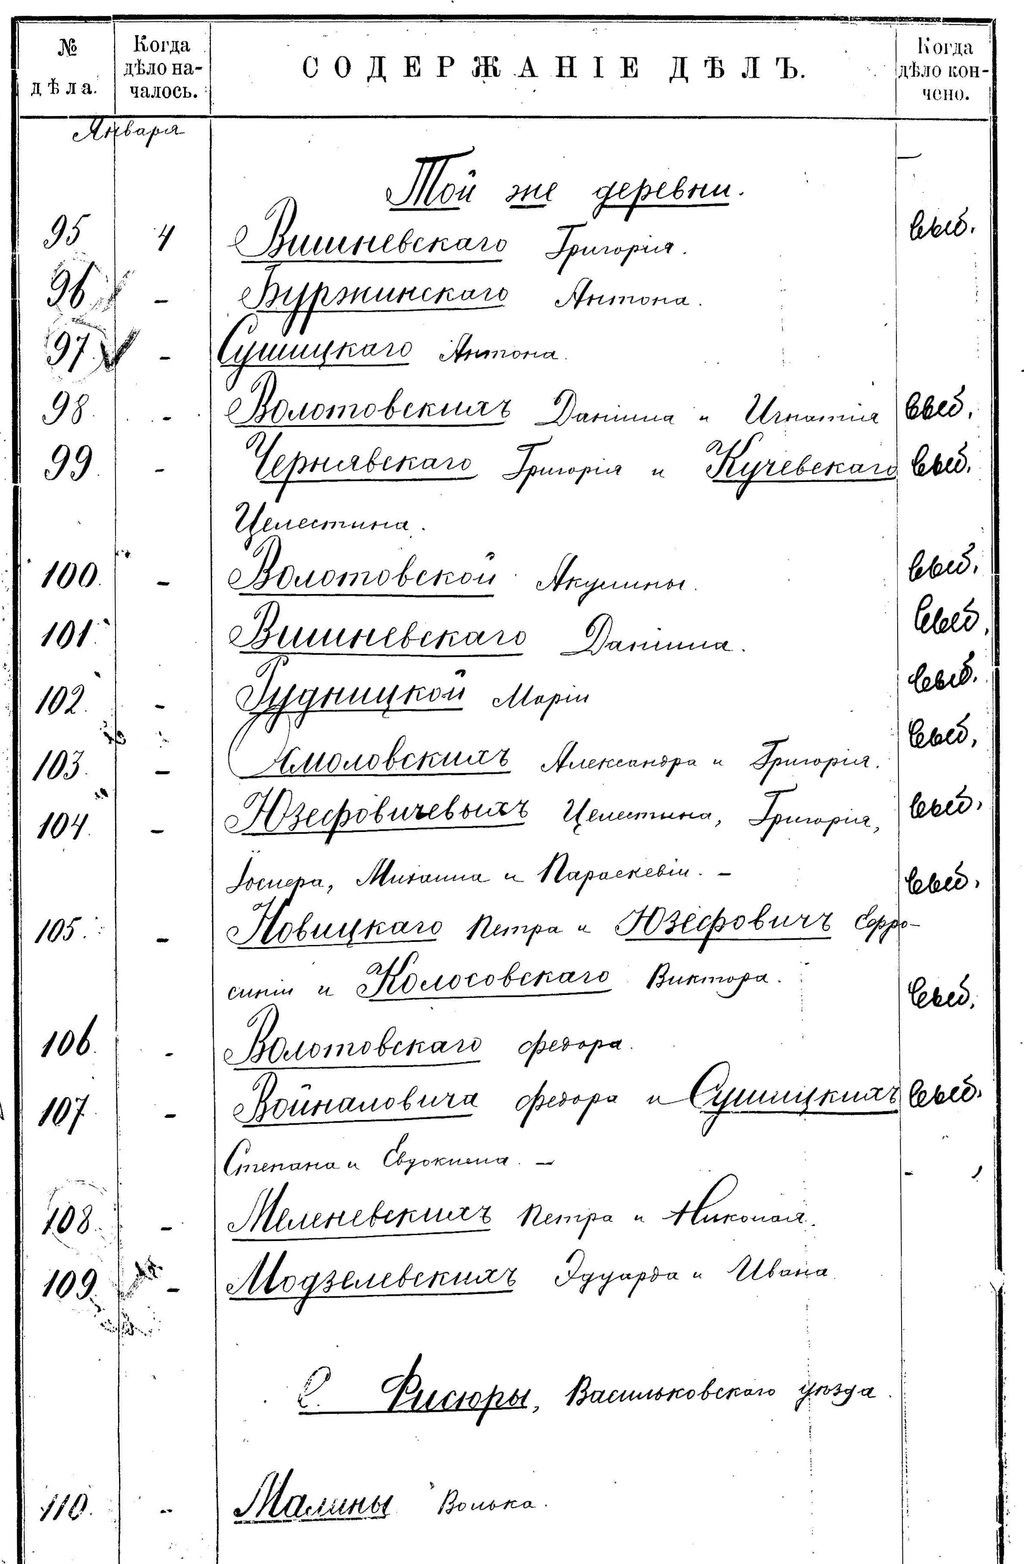 № дѣла.
Когда дѣло на-
чалось.
СОДЕРЖАНІЕ ДѢЛЪ.
Когда дѣло кон-
чено.
Января
Той же деревни.
95 4 Вишневскаго Григорія. выб.
96 - Буржинскаго Антона.
97 - Сушицкаго Антона.
98 - Волотовскихъ Даніила и Игнатія выб.
99 - Чернявскаго Григорія и Кучевскаго выб.
Целестина.
100 - Волотовской Акулины. выб.
101 Вишневскаго Даніила. выб.
102 - Рудницкой Маріи выб.
103 - Смоловскихъ Александра и Григорія. выб.
104 - Юзефовичевыхъ Целестина, Григорія, выб.
Іосифа, Михаила и Параскевіи. - выб.
105 - Новицкаго Петра и Юзефовичъ Евфро-
синіи и Колосовскаго Виктора. выб.
106 - Волотовскаго Федора.
107 - Войналовича Федора и Сушицкихъ выб.
Степана и Евдокима. -
108 - Меленевскихъ Петра и Николая.
109 - Модзелевскихъ Эдуарда и Ивана
С. Фисюры, Васильковскаго уѣзда.
110. - Малины Волька.